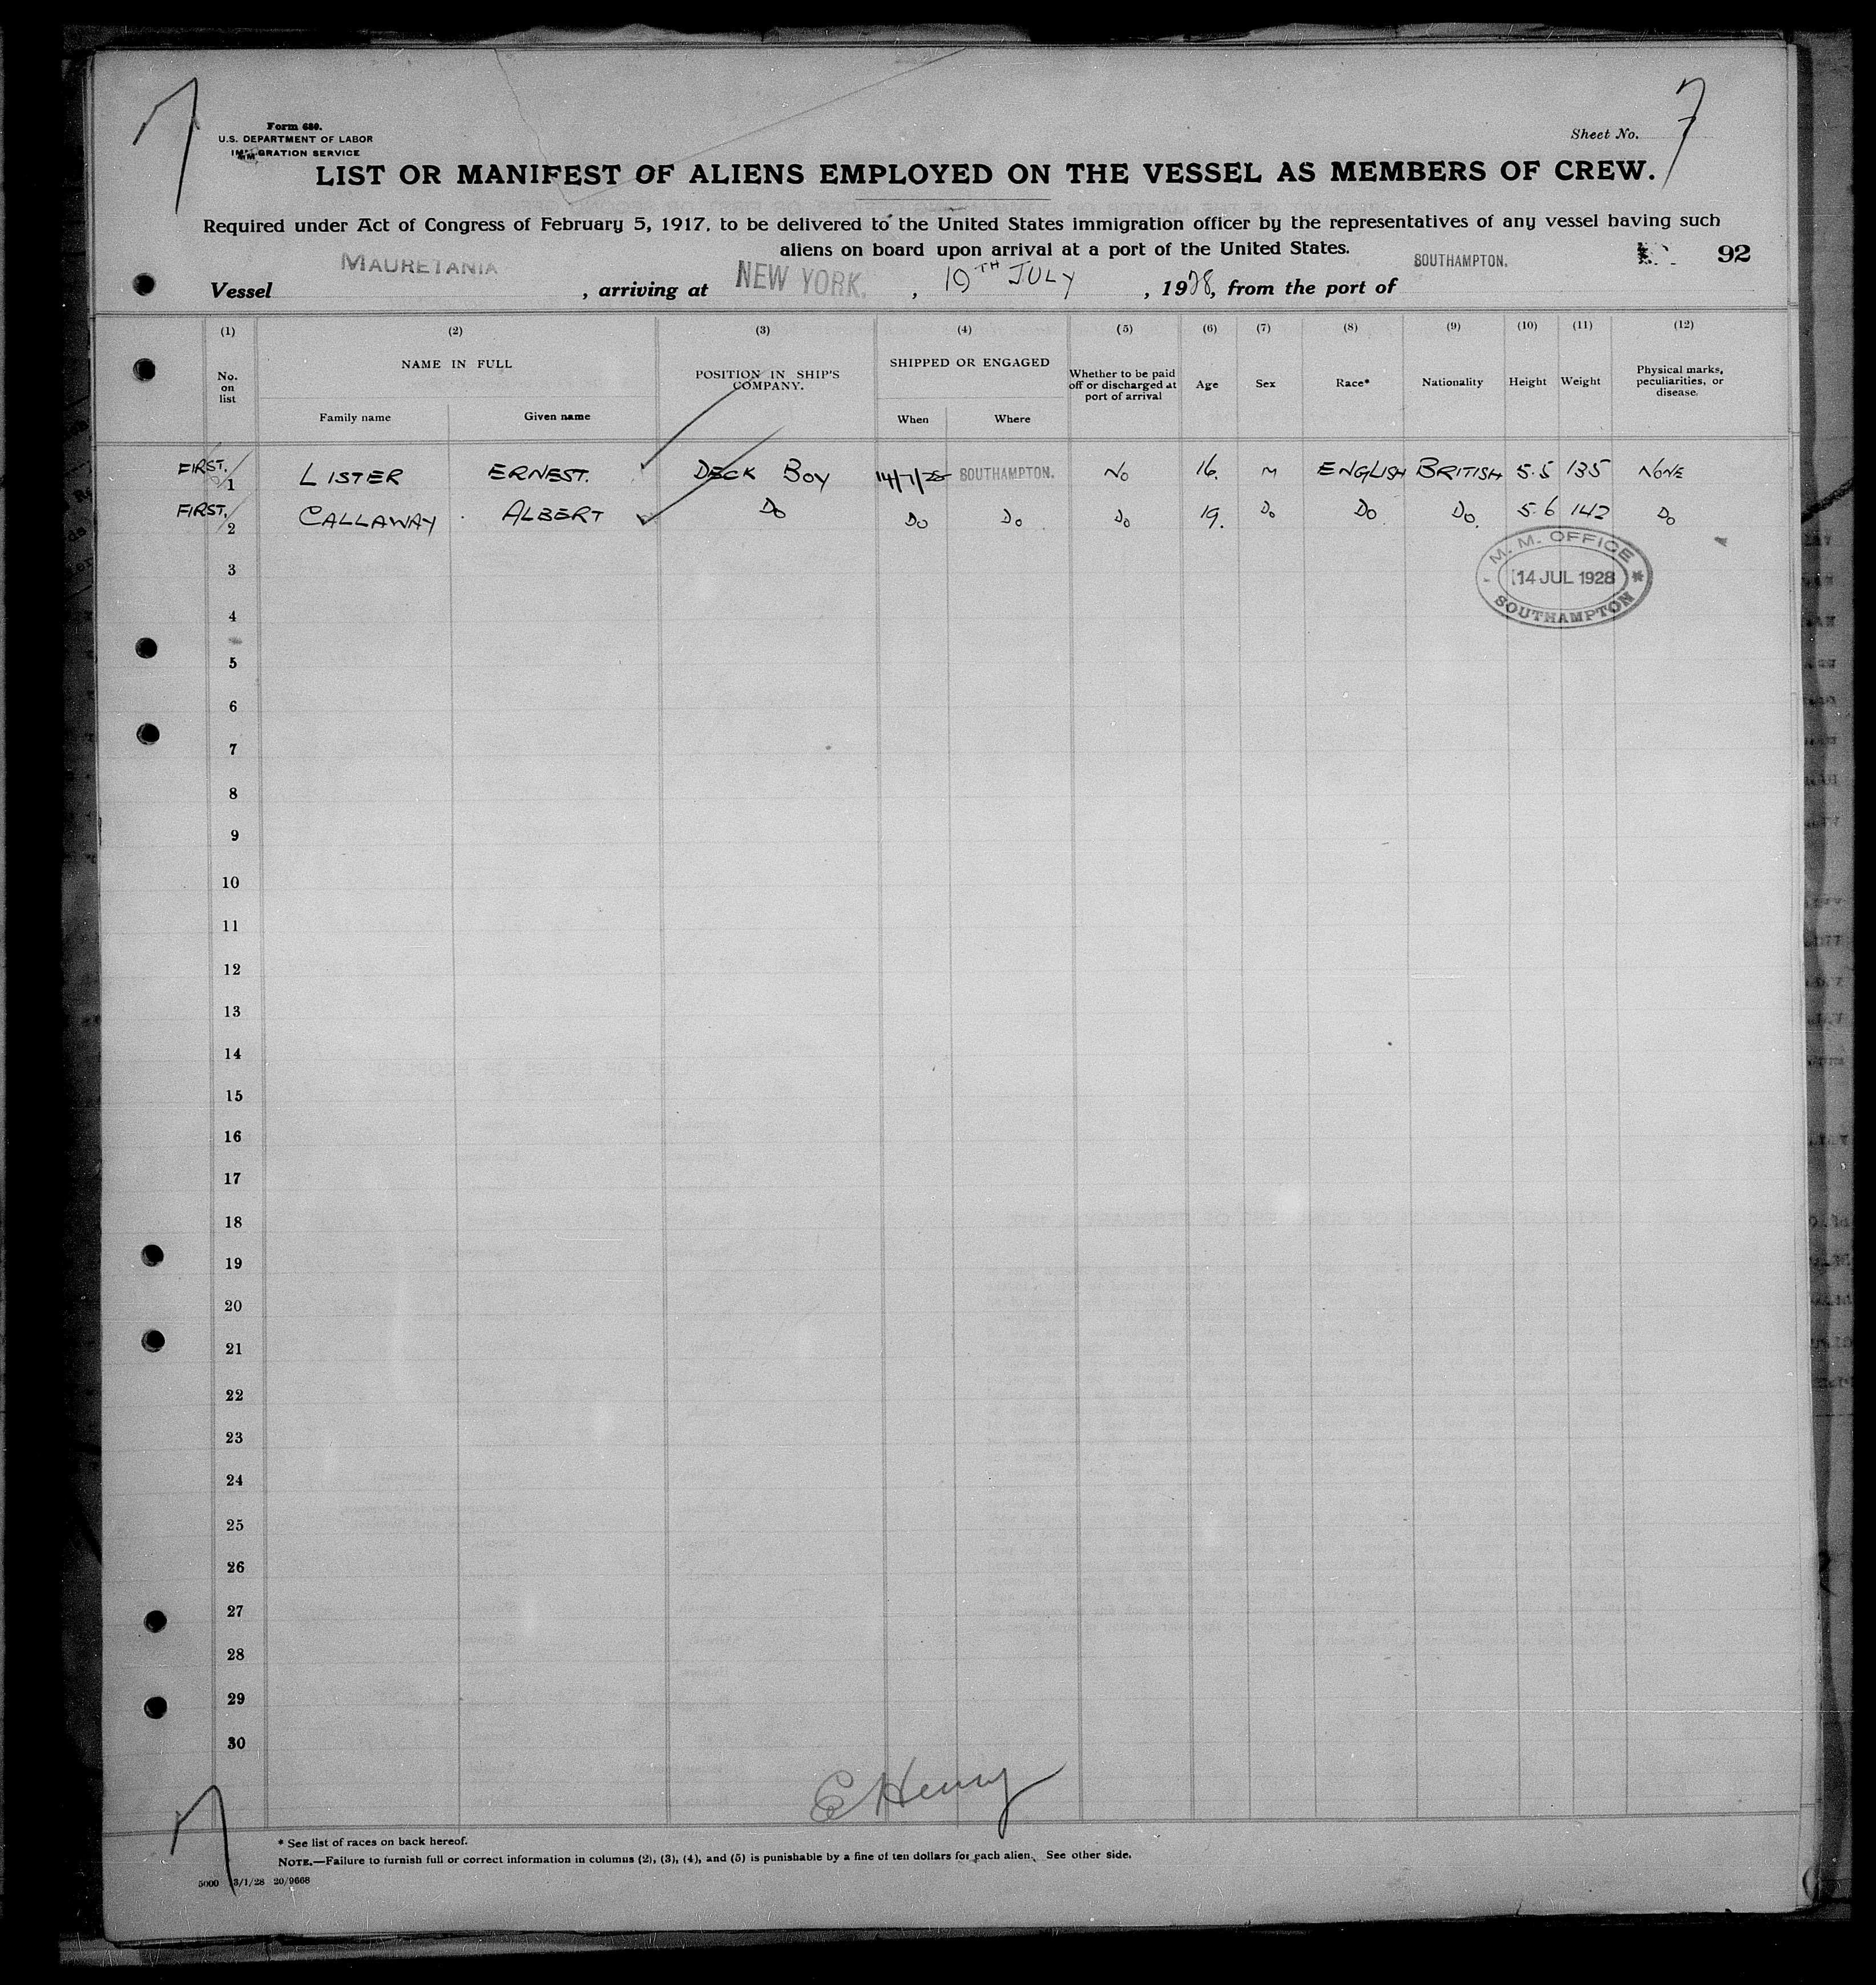 7
7
Form 680.
U.S. DEPARTMENT OF LABOR
IMMIGRATION SERVICE
Sheet No.
LIST OR MANIFEST OF ALIENS EMPLOYED ON THE VESSEL AS MEMBERS OF CREW.
Required under Act of Congress of February 5, 1917, to be delivered to the United States immigration officer by the representatives of any vessel having such
aliens on board upon arrival at a port of the United States.
92
Vessel MAURETANIA, arriving at NEW YORK, 19TH JULY, 1928, from the port of SOUTHAMPTON.
(1) (2) (3) (4) (5) (6) (7) (8) (9) (10) (11) (12)
No. on list NAME IN FULL POSITION IN SHIP'S COMPANY. SHIPPED OR ENGAGED Whether to be paid off or discharged at port of arrival Age Sex Race* Nationality Height Weight Physical marks, peculiarities, or disease.
Family name Given name When Where
FIRST. 1 LISTER ERNEST. DECK BOY 14/7/28 SOUTHAMPTON. No 16. M ENGLISH BRITISH 5.5 135 NONE
FIRST. 2 CALLAWAY ALBERT Do Do Do Do 19. Do Do Do. 5.6 142 Do
M. M. OFFICE
14 JUL 1928
SOUTHAMPTON
3
4
5
6
7
8
9
10
11
12
13
14
15
16
17
18
19
20
21
22
23
24
25
26
27
28
29
30
E Henry
7
* See list of races on back hereof.
NOTE.—Failure to furnish full or correct information in columns (2), (3), (4), and (5) is punishable by a fine of ten dollars for each alien. See other side.
5000 3/1/28 20/9668